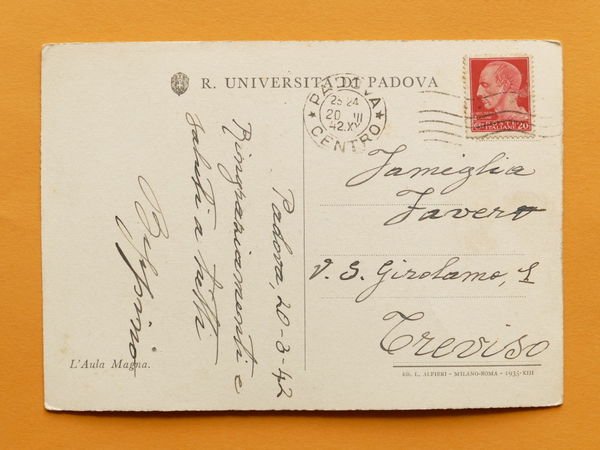 R. UNIVERSITÀ DI PADOVA
PADOVA
23-24
20 III
42.XX
CENTRO
ITALIANE 20
Padova, 20-3-42
Ringraziamenti e
saluti a tutti
Famiglia
Favero
V. S. Girolamo, 1
Treviso
L'Aula Magna.
ED. L. ALFIERI - MILANO-ROMA - 1935-XIII